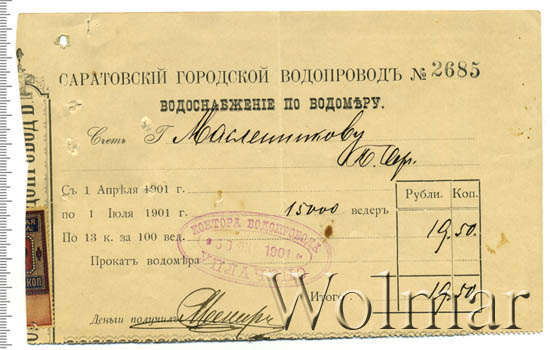 САРАТОВСКІЙ ГОРОДСКОЙ ВОДОПРОВОДЪ № 2685
ВОДОСНАБЖЕНІЕ ПО ВОДОМѢРУ.
Счетъ Г Масленникову
Съ 1 Апрѣля 1901 г.
Рубли. Коп.
по 1 Іюля 1901 г. 15000 ведеръ
По 13 к. за 100 вед. 19. 50.
КОНТОРА ВОДОПРОВОДА
1901
УПЛАЧЕНО
Прокатъ водомѣра
Итого 19. 50
Деньги получилъ
КОП
Wolmar